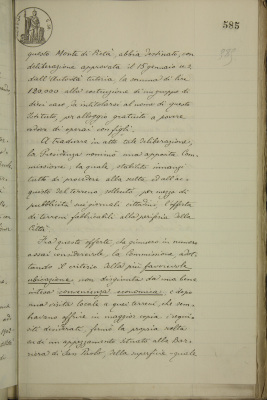 585
questo Monte di Pietà, abbia destinato, con
deliberazione approvata il 15 gennaio
dall'Autorità tutoria, la somma di lire
120.000 alla costruzione di un gruppo di
case, da intitolarsi al nome di questo
Istituto, per alloggio gratuito a povere
vedove di operai con figli.
A tradurre in atto tale deliberazione,
la Presidenza nominò una apposita Com-
missione, la quale, stabilì innanzi
tutto di procedere alla scelta e all'ac-
quisto del terreno, sollecitò, per mezzo di
pubblicità sui giornali cittadini, l'offerta
di terreni fabbricabili alla periferia della
Città.
Fra queste offerte, che giunsero in numero
assai considerevole, la Commissione, adot-
tando il criterio della più favorevole
ubicazione, non disgiunta da una ben
intesa convenienza economica, e dopo
una visita locale a quei terreni, che sem-
bravano offrire in maggior copia i requi-
siti desiderati, fermò la propria scelta
su di un appezzamento situato alla Bar-
riera di San Paolo, della superficie quale